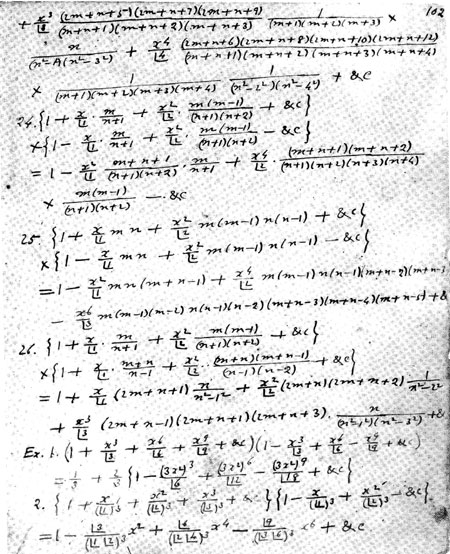 + x³/|3 (2m+n+5)(2m+n+7)(2m+n+9)/(m+n+1)(m+n+2)(m+n+3) · 1/(m+1)(m+2)(m+3) × 102
n/(n²-1²)(n²-3²) + x⁴/|4 (2m+n+6)(2m+n+8)(2m+n+10)(2m+n+12)/(m+n+1)(m+n+2)(m+n+3)(m+n+4)
× 1/(m+1)(m+2)(m+3)(m+4) · 1/(n²-2²)(n²-4²) + &c
24. {1 + x/|1 · m/n+1 + x²/|2 · m(m-1)/(n+1)(n+2) + &c}
× {1 - x/|1 · m/n+1 + x²/|2 · m(m-1)/(n+1)(n+2) - &c}
= 1 - x²/|1 · m+n+1/(n+1)(n+2) · m/n+1 + x⁴/|2 · (m+n+1)(m+n+2)/(n+1)(n+2)(n+3)(n+4)
× m(m-1)/(n+1)(n+2) - &c
25 {1 + x/|1 mn + x²/|2 m(m-1) n(n-1) + &c}
× {1 - x/|1 mn + x²/|2 m(m-1) n(n-1) - &c}
= 1 - x²/|1 mn(m+n-1) + x⁴/|2 m(m-1) n(n-1)(m+n-2)(m+n-3)
- x⁶/|3 m(m-1)(m-2) n(n-1)(n-2)(m+n-3)(m+n-4)(m+n-5) + &
26. {1 + x/|1 · m/n+1 + x²/|2 m(m-1)/(n+1)(n+2) + &c}
× {1 + x/|1 · m+n/n-1 + x²/|2 · (m+n)(m+n-1)/(n-1)(n-2) + &c}
= 1 + x/|1 (2m+n+1) n/n²-1² + x²/|2 (2m+n)(2m+n+2) 1/n²-2²
+ x³/|3 (2m+n-1)(2m+n+1)(2m+n+3) · n/(n²-1²)(n²-3²) + &
Ex. 1. (1 + x³/|3 + x⁶/|6 + x⁹/|9 + &c)(1 - x³/|3 + x⁶/|6 - x⁹/|9 + &c)
= 1/3 + 2/3 {1 - (3x²)³/|6 + (3x²)⁶/|12 - (3x²)⁹/|18 + &c}
2. {1 + x/(|1)³ + x²/(|2)³ + x³/(|3)³ + &c} {1 - x/(|1)³ + x²/(|2)³ - &c}
= 1 - |3/(|1 |2)³ x² + |6/(|2 |4)³ x⁴ - |9/(|3 |6)³ x⁶ + &c